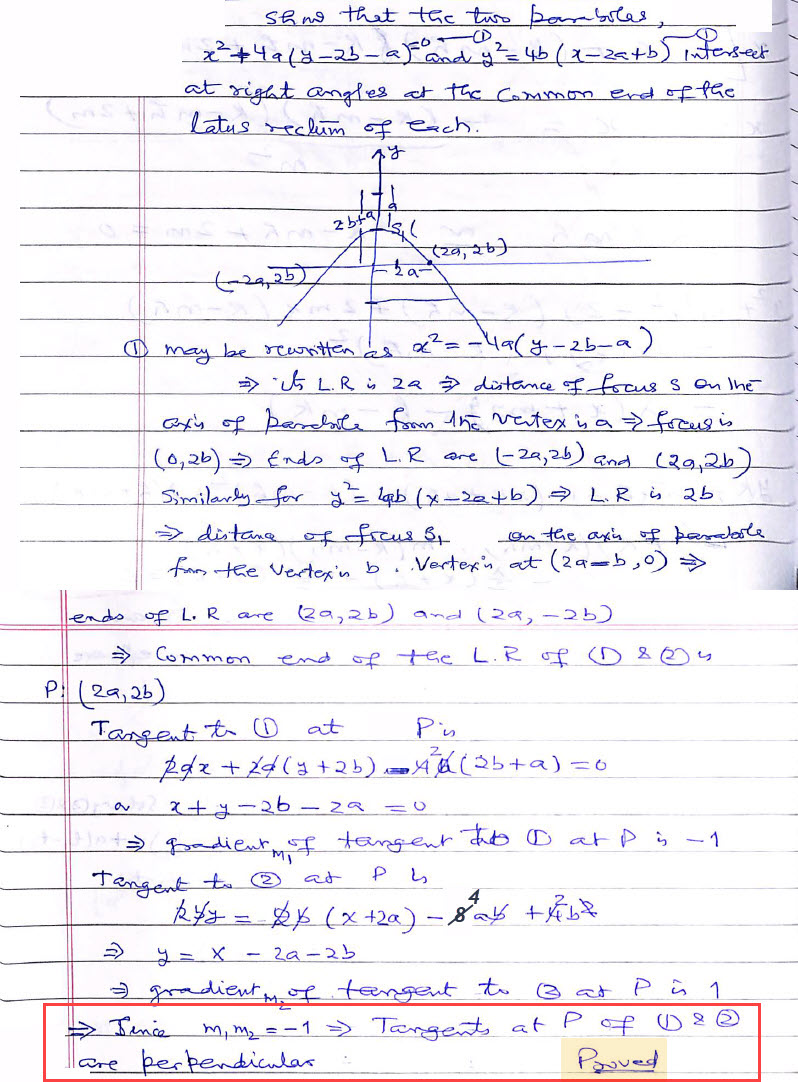 Show that the two paraboles,
x² + 4a(y-2b-a)=0 —① and y² = 4b(x-2a+b) —① intersect
at right angles at the common end of the
latus rectum of each.
y
a
2b+a
S₁(
(2a, 2b)
(-2a, 2b)
-2a-
① may be rewritten as x² = -4a(y-2b-a)
⇒ its L.R is 2a ⇒ distance of focus S on the
axis of parabole from the vertex is a ⇒ focus is
(0, 2b) ⇒ Ends of L.R are (-2a, 2b) and (2a, 2b)
Similarly for y² = 4b(x-2a+b) ⇒ L.R is 2b
⇒ distance of focus S₁ on the axis of parabole
from the vertex is b. Vertex is at (2a-b, 0) ⇒
ends of L.R are (2a, 2b) and (2a, -2b)
⇒ Common end of the L.R of ① & ② is
P: (2a, 2b)
Tangent to ① at P is
2ax + 2a(y+2b) - 4a(2b+a) = 0
2
x + y - 2b - 2a = 0
⇒ gradient m₁ of tangent to ① at P is -1
Tangent to ② at P is
2by = 2b(x+2a) - 8ab + 4b²
4 2
⇒ y = x - 2a - 2b
⇒ gradient m₂ of tangent to ② at P is 1
⇒ Since m₁m₂ = -1 ⇒ Tangents at P of ① & ②
are perpendicular. Proved